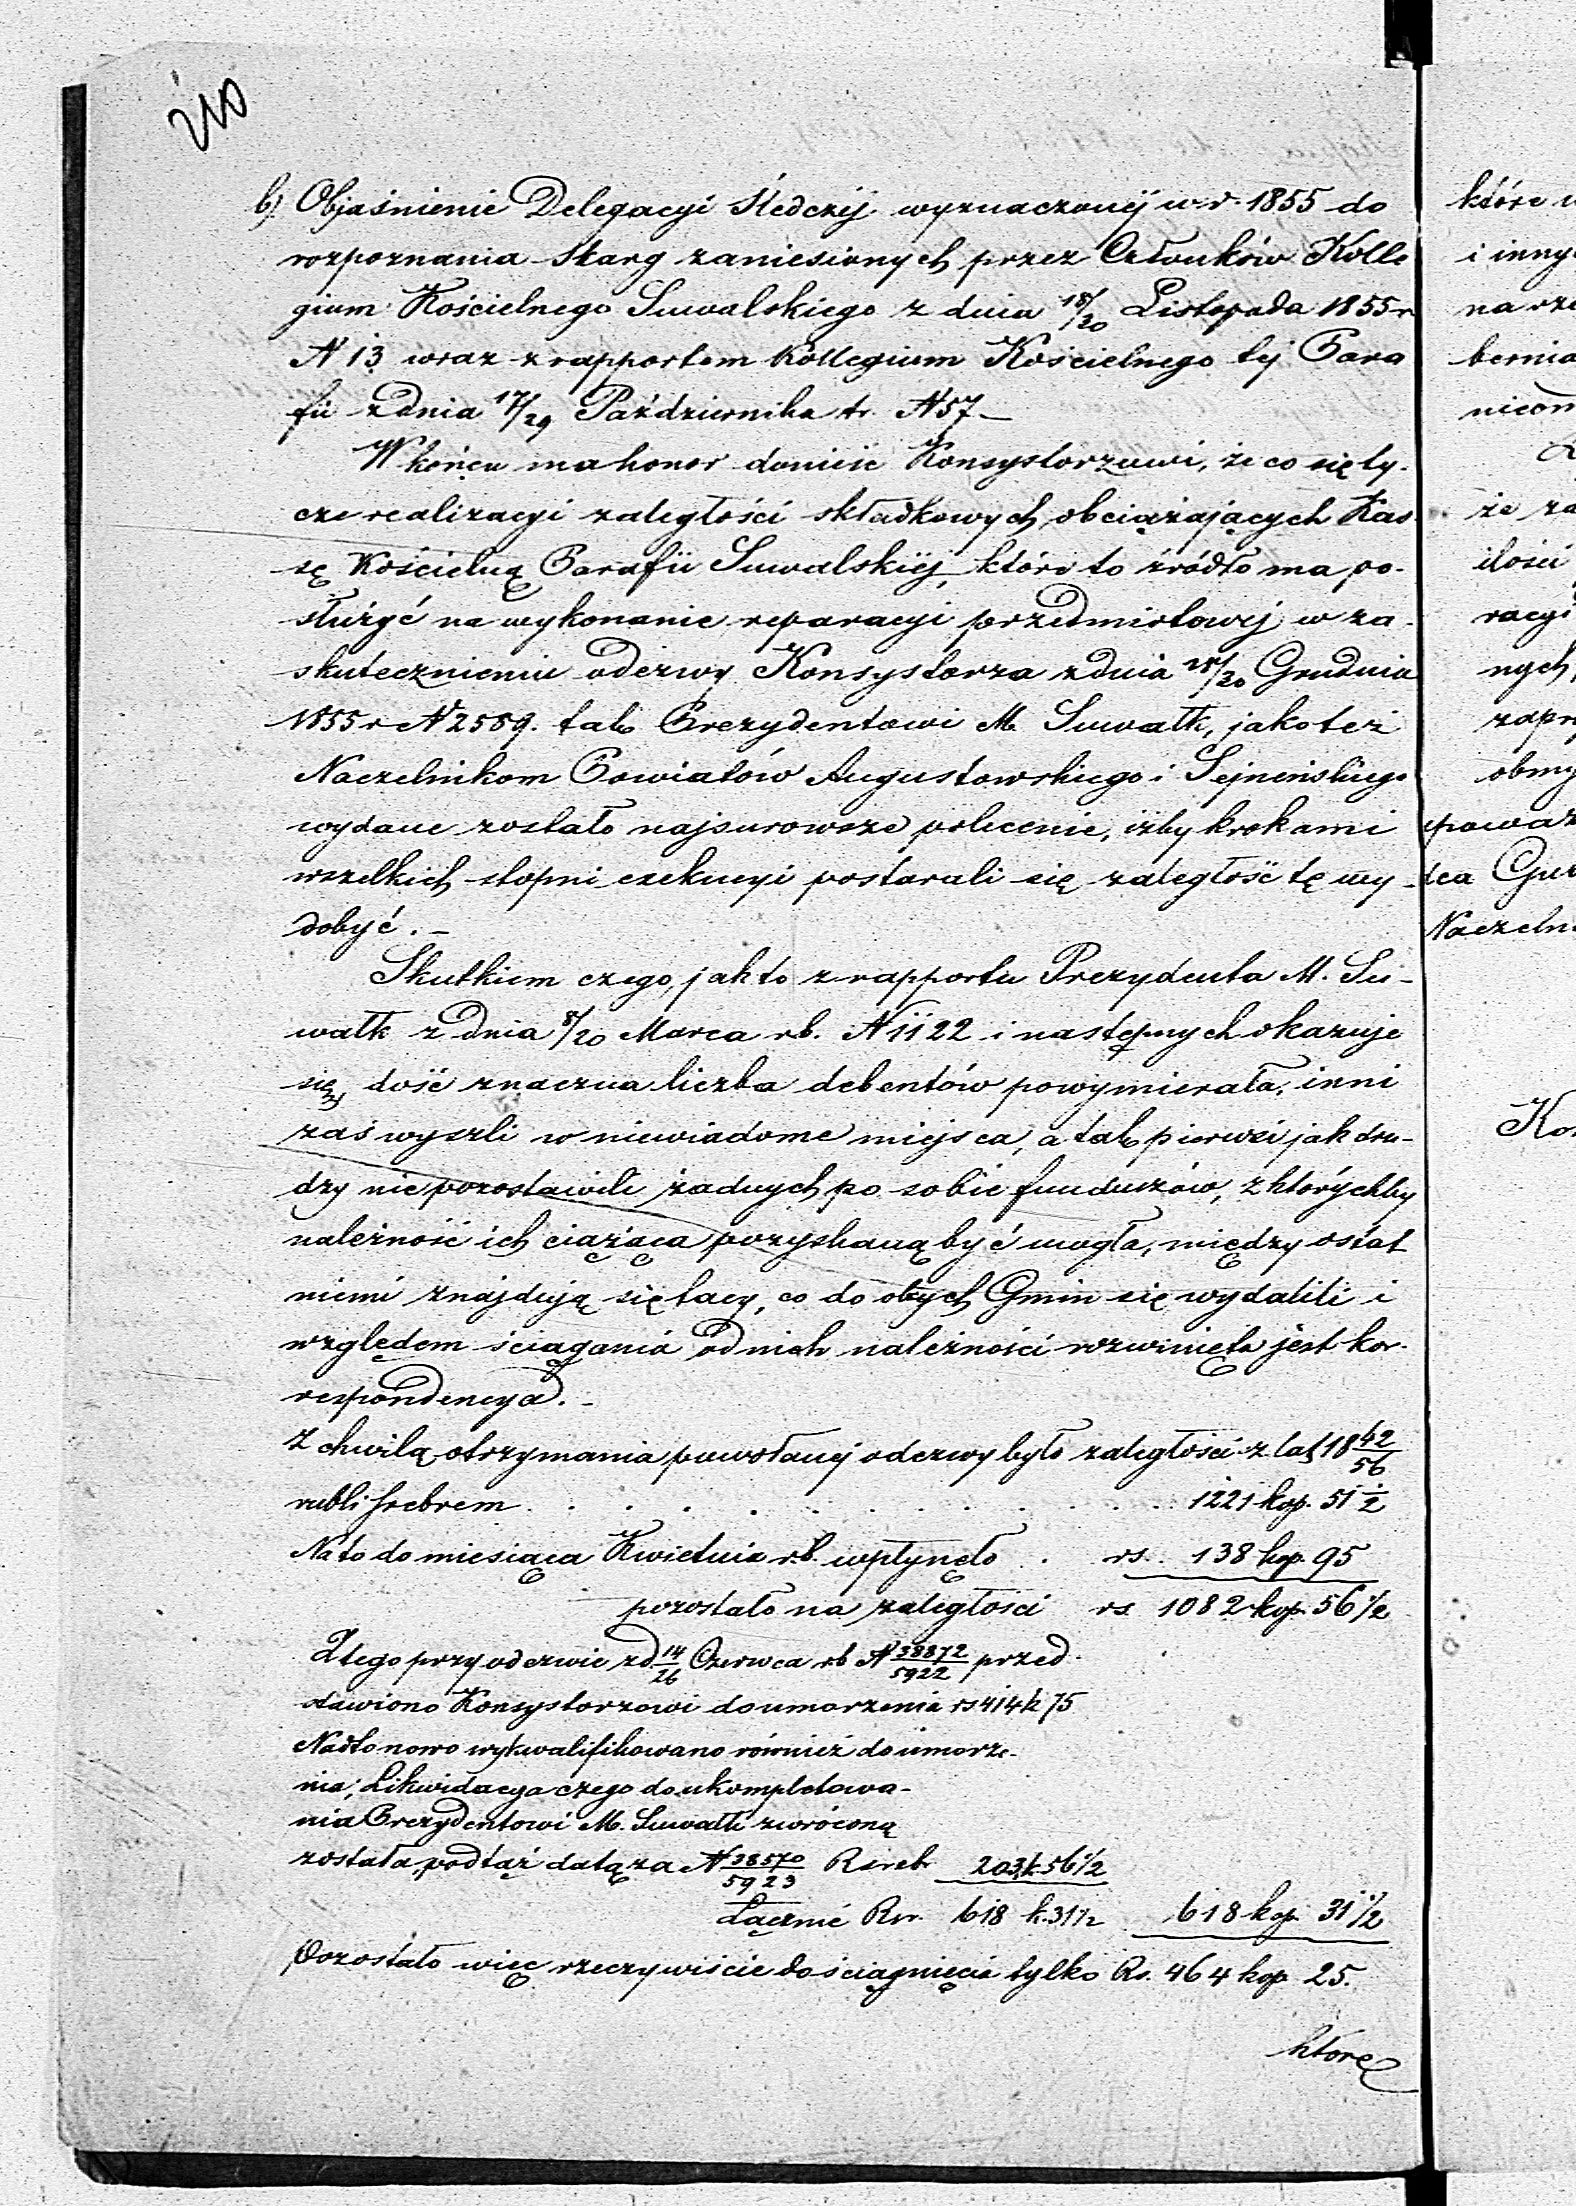 b) Objaśnienie Delegacyi Śledczéj wyznaczonéj w r. 1855 do
rozpoznania skarg zaniesionych przez Członków Kolle
gium Kościelnego Suwalskiego z dnia 18/20 Listopada 1855 r
N 13 wraz z rapportem Kollegium Kościelnego tej Para
fii z dnia 17/29 Października t r. N 57 –
W końcu ma honor donieść Konsystorzowi, że co się ty-
cze realizacyi zaległości składkowych, obciążających Kas-
sę Kościelną Parafii Suwalskiéj, które to źródło ma po-
służyć na wykonanie reparacyi przedmiotowej, w za-
skutecznieniu odezwy Konsystorza z dnia /20 Grudnia
1855 r N 2589. tak Prezydentowi M. Suwałk, jako też
Naczelnikom Powiatów Augustowskiego i Sejneńskiego
wydane zostało najsurowsze polecenie, iżby krokami
wszelkich stopni exekucyi postarali się zaległość tę wy-
dobyć. –
Skutkiem czego, jak to z rapportu Prezydenta M. Su-
wałk z dnia 8/20 Marca r b. N 1122 i następnych okazuje
się, dość znaczna liczba debentów powymierała, inni
zaś wyszli w niewiadome miejsca, a tak pierwsi jak dru-
dzy nie pozostawili żadnych po sobie funduszów, z którychby
należność ich ciążąca pozyskaną być mogła, między ostat
niemi znajdują się tacy, co do obych Gmin się wydalili i
względem ściągania od nich należności rozwinięta jest kor-
respondencya. –
Z chwilą otrzymania powołanej odezwy było zaległości z lat 18 42/56
rubli srebrem . . . . . . . . . . 1221 kop. 51 1/2
Na to do miesiąca Kwietnia r.b. wpłynęło . rs. 138 kop. 95
pozostało na zaległości rs. 1082 kop. 56 1/2
Z tego przy odezwie z d 14/26 Czerwca rb N 38872/5922 przed-
stawiono Konsystorzowi do umorzenia rs 414 k 75
Nadto nowo wykwalifikowano również do umorze-
nia; Likwidacya czego do ukompletowa-
nia Prezydentowi M. Suwałk zwróconą
została pod tąż datą za N 38570/5923 Rsreb 203 k. 56 1/2
Łącznie Rsr. 618 k. 31 1/2 618 kop. 31 1/2
Pozostało więc rzeczywiście do ściągnięcia tylko Rs. 464 kop 25.
które
które
i inny
na rze
bernia
że za
ilości
racyi
nych,
zapr
obmy
poważ
Naczeln